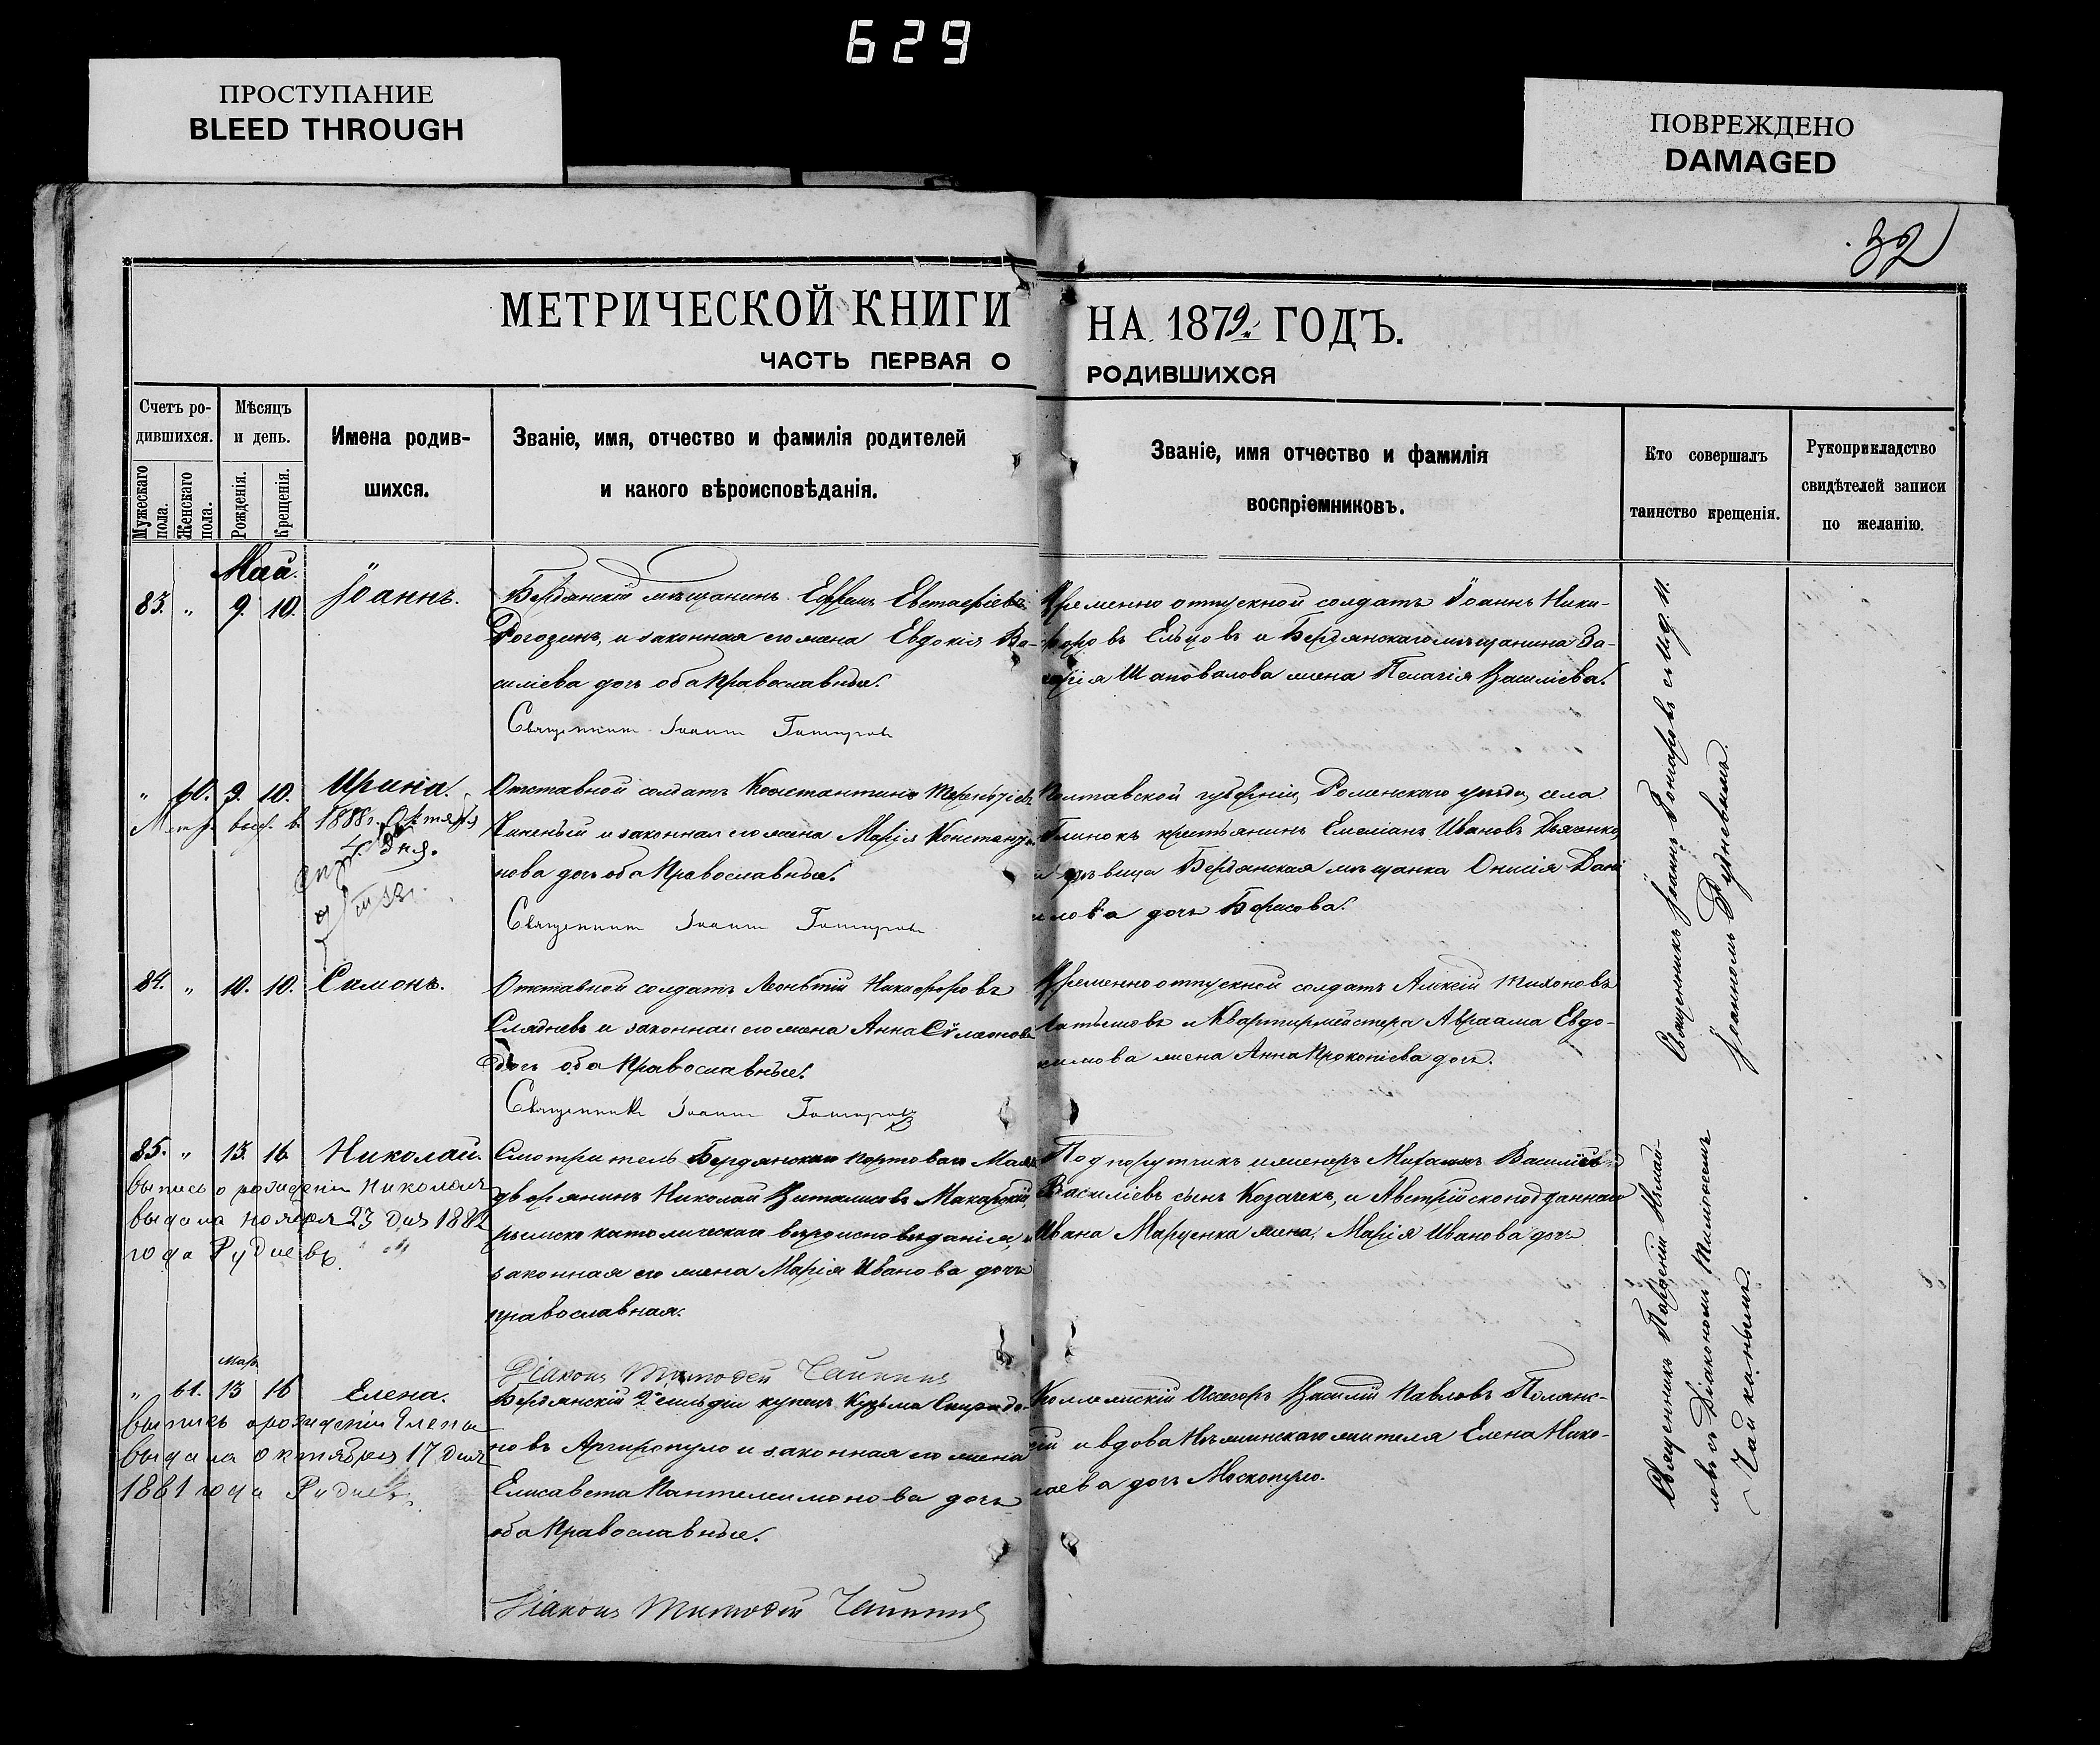 629
ПРОСТУПАНИЕ
BLEED THROUGH
ПОВРЕЖДЕНО
DAMAGED
32
МЕТРИЧЕСКОЙ КНИГИ НА 1879 ГОДЪ.
ЧАСТЬ ПЕРВАЯ О РОДИВШИХСЯ
Счетъ ро-
дившихся.
Мужескаго пола.
Женскаго пола.
Мѣсяцъ
и день.
Рожденія.
Крещенія.
Имена родив-
шихся.
Званіе, имя, отчество и фамилія родителей
и какого вѣроисповѣданія.
Званіе, имя отчество и фамилія
воспріемниковъ.
Кто совершалъ
таинство крещенія.
Рукоприкладство
свидѣтелей записи
по желанію.
Май.
83. " 9. 10. Іоаннъ.
Бердянскій мѣщанинъ Ефремъ Евстафіевъ
Рогозинъ, и законная его жена Евдокія Ва-
силіева дочь оба Православные.
Священникъ Іоаннъ Гончаровъ
Временно отпускной солдатъ Іоаннъ Ники-
форовъ Ельцовъ и Бердянскаго мѣщанина За-
харія Шаповалова жена Пелагія Василіева.
" 60. 9. 10. Ирина.
Метр. выд. в 1888 г. Октября
4 дня.
Отставной солдатъ Константинъ Терентіевъ
и законная его жена Марія Константи-
нова дочь оба Православные.
Священникъ Іоаннъ Гончаровъ
Полтавской губерніи, Роменскаго уѣзда, села
Глинокъ крестьянинъ Емеліанъ Ивановъ Дьяченко,
и дѣвица Бердянская мѣщанка Онисія Дані-
илова дочь Борисова.
84. " 10. 10. Симонъ.
Отставной солдатъ Леонтій Никифоровъ
Сладневъ и законная его жена Анна Симеонова
дочь оба Православные.
Священникъ Іоаннъ Гончаровъ
Временно отпускной солдатъ Алексій Тихоновъ
Латышовъ и Квартирмейстера Авраама Евдо-
кимова жена Анна Прокопіева дочь.
Священникъ Іоаннъ Гончаровъ съ и. д. п.
Іоанномъ Рудневымъ.
85. " 13. 16. Николай.
Выпись о рожденіи Николая
выдана ноября 23 дня 1882
года Рудневъ.
Смотритель Бердянскаго Портоваго Маяка
дворянинъ Николай Виталисовъ Макарскій,
римско католическаго вѣроисповѣданія, и
законная его жена Марія Иванова дочь
православная.
Діаконъ Тимофей Чайкинъ
Подпорутчикъ инженеръ Михаилъ Василіевъ
Василіевъ сынъ Козачекъ, и Австрійскоподданнаго
Ивана Марценка жена, Марія Иванова дочь
Мая.
" 61. 13 16 Елена.
Выпись о рожденіи Елены
выдана октября 17 дня
1881 года Рудневъ.
Бердянскій 2й гильдіи купецъ Кузьма Спиридо-
новъ Аргиропуло и законная его жена
Елисавета Пантелеимонова дочь
оба Православные.
Діаконъ Тимофей Чайкинъ
Коллежскій Асесоръ Василій Павловъ Полянс-
кій и вдова Нѣжинскаго жителя Елена Нико-
лаева дочь Москопуло.
Священникъ Михай-
ловъ съ Діакономъ Тимофеемъ
Чайкинымъ.